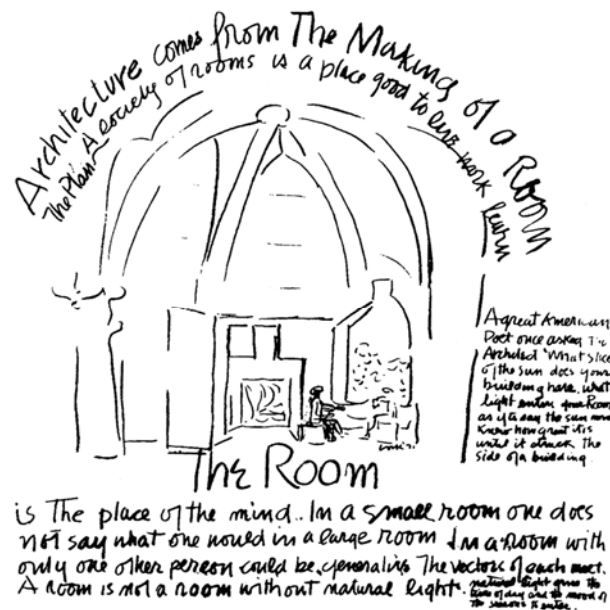 Architecture comes from The Making of a Room
The Plan A society of rooms is a place good to live work learn
A great American
Poet once asked the
Architect 'What slice
of the sun does your
building have, what
light enters your Room
as if to say the sun never
knew how great it is
until it struck the
side of a building.
The Room
is The place of the mind.. In a small room one does
not say what one would in a large room In a Room with
only one other person could be generative The vectors of each meet.
A room is not a room without natural light.
natural light gives the
time of day and the mood of
the seasons to enter.